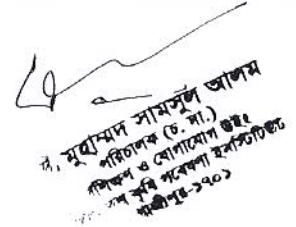 ড. মুহাম্মদ সামসুল আলম
পরিচালক (চ. দা.)
প্রশিক্ষণ ও যোগাযোগ উইং
কৃষি গবেষণা ইনস্টিটিউট
গাজীপুর-১৭০১